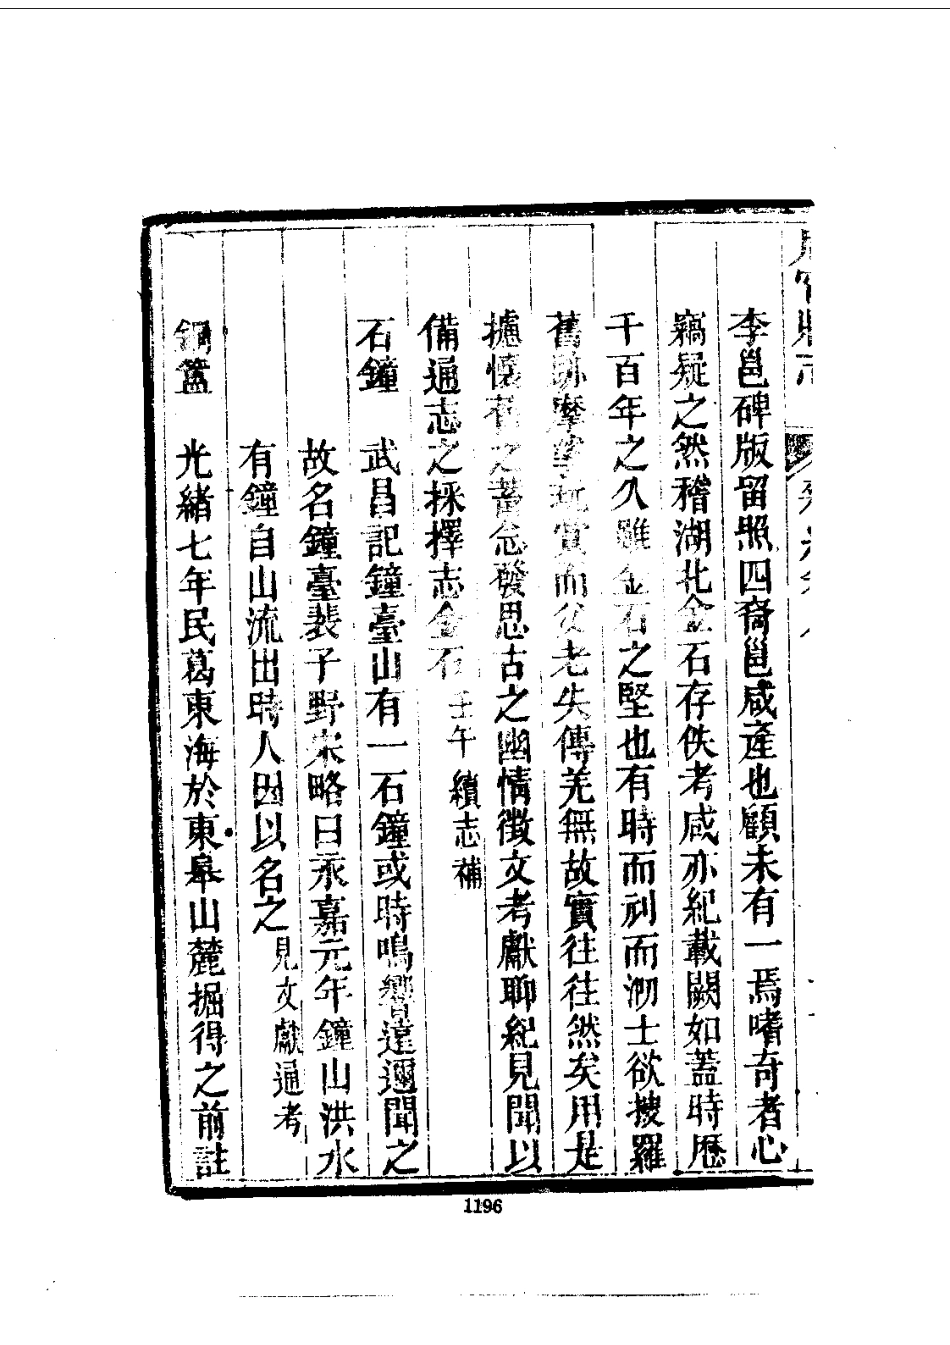 咸寧縣志
李邕碑版留照四裔邕咸產也顧未有一焉嗜奇者心
竊疑之然稽湖北金石存佚考咸亦紀載闕如蓋時歷
千百年之久雖金石之堅也有時而刓而泐士欲搜羅
舊跡摩挲玩賞而父老失傳羌無故實往往然矣用是
攄懷舊之蓄念發思古之幽情徵文考獻聊紀見聞以
備通志之採擇志金石壬午續志補
石鐘 武昌記鐘臺山有一石鐘或時鳴響遠邇聞之
故名鐘臺裴子野宋略曰永嘉元年鐘山洪水
有鐘自山流出時人因以名之見文獻通考
銅簠 光緒七年民葛東海於東臯山麓掘得之前註
1196